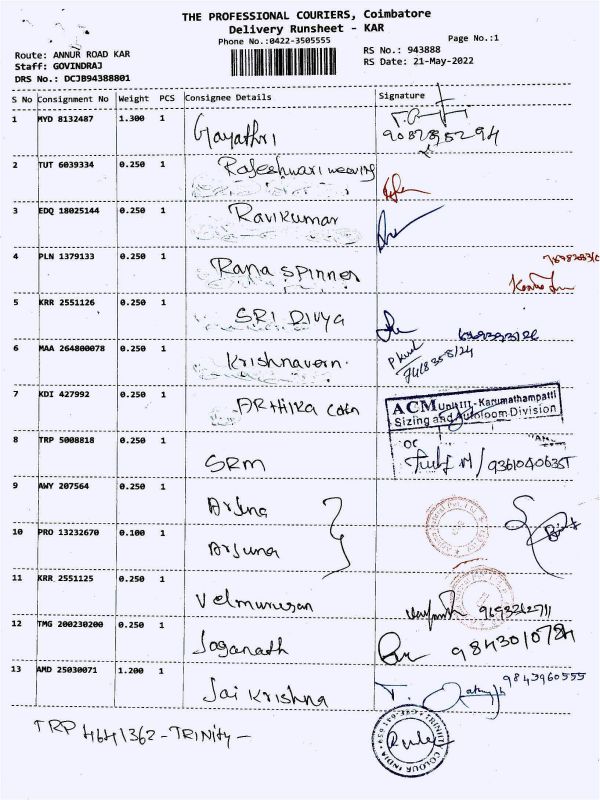 THE PROFESSIONAL COURIERS, Coimbatore
Delivery Runsheet - KAR
Phone No.:0422-3505555
Page No.:1
Route: ANNUR ROAD KAR
RS No.: 943888
Staff: GOVINDRAJ
RS Date: 21-May-2022
DRS No.: DCJB94388801
S No Consignment No Weight PCS Consignee Details Signature
1 MYD 8132487 1.300 1 Gayathri
2 TUT 6039334 0.250 1 Rajeshwari weaving
3 EDQ 18025144 0.250 1 Ravikumar
4 PLN 1379133 0.250 1 Rana spinner
5 KRR 2551126 0.250 1 SRI DIVYA
6 MAA 264800078 0.250 1 Krishnaveni
7 KDI 427992 0.250 1
ACM Unit III - Karumathampatti
Sizing and Autoloom Division
8 TRP 5008818 0.250 1 SRM 9361040635
9 AWY 207564 0.250 1 Arjuna
10 PRO 13232670 0.100 1 Arjuna
11 KRR 2551125 0.250 1 Velmurugan
12 TMG 200230200 0.250 1 Joganath 9843010784
13 AMD 25030071 1.200 1 Jai Krishna 9843960555
TRP 4641362 - TRINITY -
COLOUR INDIA